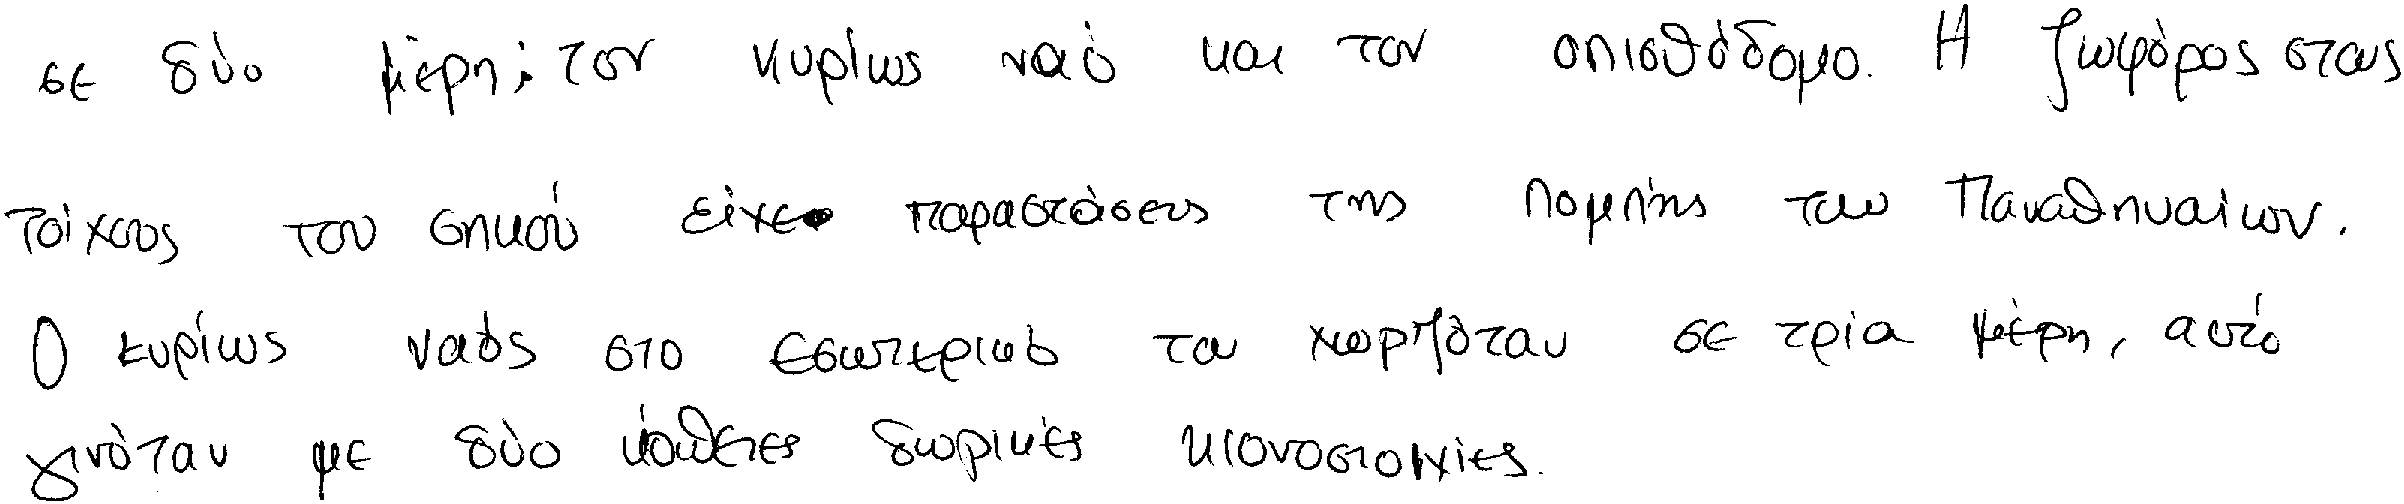 σε δύο μέρη; τον κυρίως ναό και τον οπισθόδομο. Η ζωφόρος στους
τοίχους του σηκού είχε παραστάσεις της πομπής των Παναθηναίων.
Ο κυρίως ναός στο εσωτερικό του χωριζόταν σε τρία μέρη, αυτό
γινόταν με δύο κάθετες δωρικές κιονοστοιχίες.